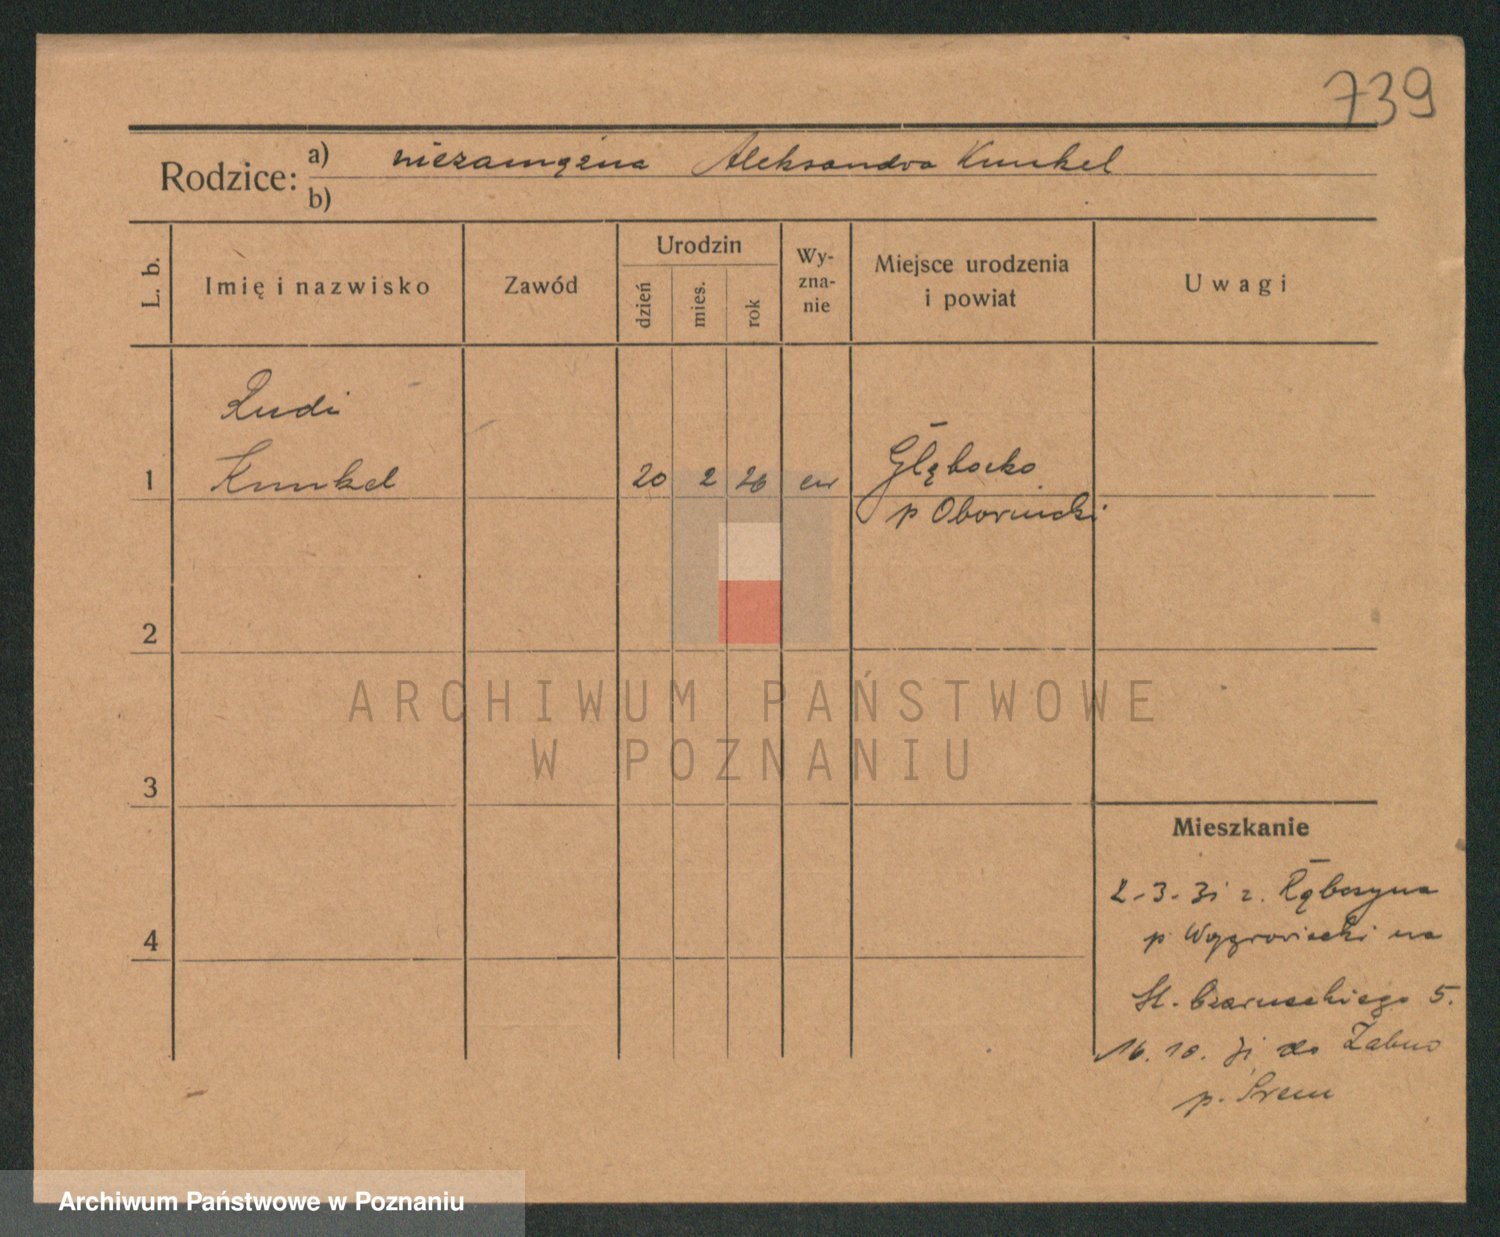 739
Rodzice: a) niezamężna Aleksandra Kunkel
b)
L. b. Imię i nazwisko Zawód Urodzin dzień mies. rok Wy-zna-nie Miejsce urodzenia i powiat Uwagi
Rudi
1 Kunkel 20 2 26 ew Głębocko
p Obornicki
2
ARCHIWUM PAŃSTWOWE
W POZNANIU
3
Mieszkanie
2-3-31 z. Rąbczyna
p Wągrowiecki na
4
St. Czarneckiego 5.
16.10.31 do Żabno
p. Śrem
Archiwum Państwowe w Poznaniu